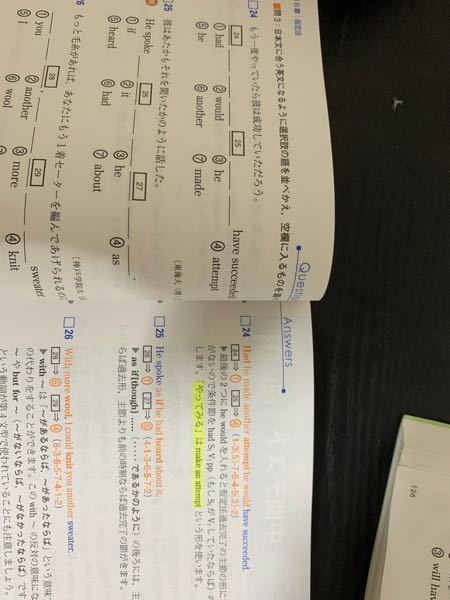 6章：仮定法
問3：日本文に合う英文になるように選択肢の語を並べかえ，空欄に入るものを
Questi
24 もう一度やっていたら彼は成功していただろう。
24 25 have succeeded
① had ② would ③ he ④ attempt
⑤ he ⑥ another ⑦ made
25 彼はあたかもそれを聞いたかのように話した。
〔東海大
He spoke 26 27
① if ② it ③ he ④ as
⑤ heard ⑥ had ⑦ about
もっと毛糸があれば，あなたにもう1着セーターを編んであげられるの
〔神戸学院大
28 29 sweater
① you ② another ③ more ④ knit
⑤ I ⑥ wool
Answers
24 Had he made another attempt he would have succeeded.
24 ⇒ ① 25 ⇒ ④ (1-3(5)-7-6-4-5(3)-2)
▶最後の2つに he would を入れると仮定法過去完了の主節の形に
がないので条件節を had S₁ V₁pp（もし S₁ が V₁ していたならば）の
します。「やってみる」は make an attempt という形を使います。
25 He spoke as if he had heard about it.
26 ⇒ ① 27 ⇒ ⑤ (4-1-3-6-5-7-2)
▶ as if[though] …...（……であるかのように）の後ろには，主
らば過去形，主節よりも前の時制ならば過去完了の節がきます。
26 With more wool, I could knit you another sweater.
28 ⇒ ⑥ 29 ⇒ ④ (8-3-6-5-7-4-1-2)
▶ with ～ は「～があるならば，～があったならば」という意味
の代わりをすることができます。この with ～ の反対の意味にな
や but for ～（～がないならば，～がなかったならば）です
という動詞が第4文型で使われていることにも注意しましょう。
126
③ will hav